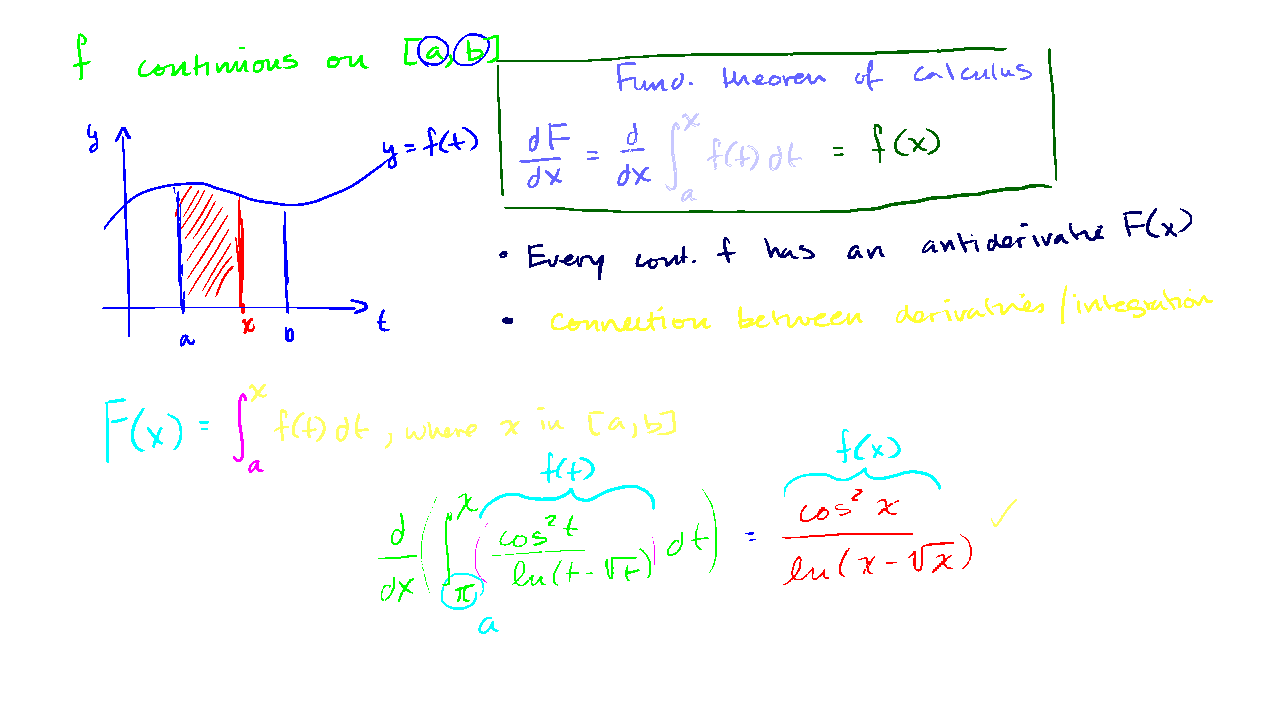 f continuous on [a, b]
Fund. theorem of calculus
dF/dx = d/dx ∫_a^x f(t) dt = f(x)
y
y = f(t)
a
x
b
t
• Every cont. f has an antiderivative F(x)
• Connection between derivatives/integration
F(x) = ∫_a^x f(t) dt, where x in [a, b]
f(t)
f(x)
d/dx (∫_π^x (cos² t / ln(t - √t)) dt) = cos² x / ln(x - √x) ✓
a